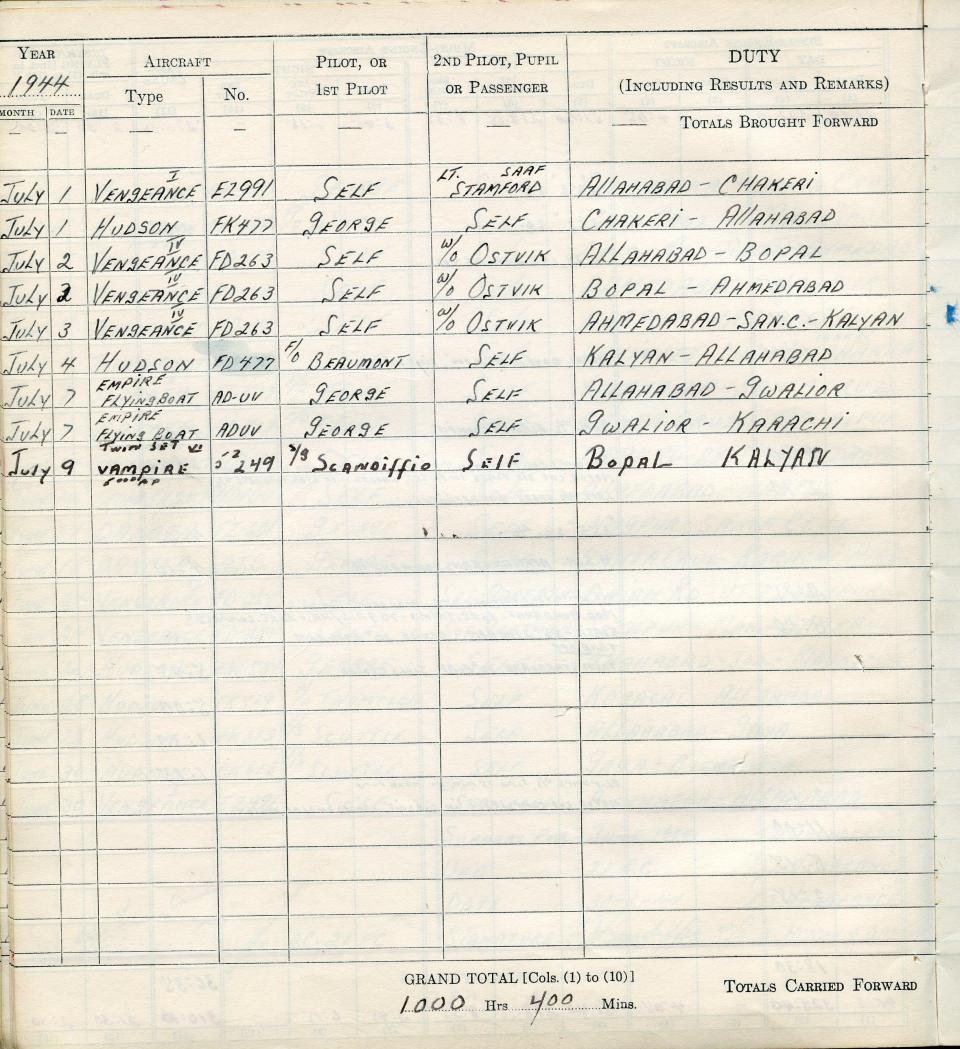 YEAR AIRCRAFT PILOT, OR 2ND PILOT, PUPIL DUTY
1944 Type No. 1ST PILOT OR PASSENGER (INCLUDING RESULTS AND REMARKS)
MONTH DATE
— — — — — — — TOTALS BROUGHT FORWARD
July 1 VENGEANCE I EZ991 SELF LT. STAMFORD SAAF ALLAHABAD - CHAKERI
July 1 HUDSON FK477 GEORGE SELF CHAKERI - ALLAHABAD
July 2 VENGEANCE IV FD263 SELF W/O OSTVIK ALLAHABAD - BOPAL
July 2 VENGEANCE IV FD263 SELF W/O OSTVIK BOPAL - AHMEDABAD
July 3 VENGEANCE IV FD263 SELF W/O OSTVIK AHMEDABAD - SAN.C. - KALYAN
July 4 HUDSON FD477 F/O BEAUMONT SELF KALYAN - ALLAHABAD
July 7 EMPIRE FLYING BOAT AD-UV GEORGE SELF ALLAHABAD - GWALIOR
July 7 EMPIRE FLYING BOAT ADUV GEORGE SELF GWALIOR - KARACHI
July 9 TWIN VAMPIRE 249 SCANDIFFIO SELF BOPAL KALYAN
GRAND TOTAL [Cols. (1) to (10)] TOTALS CARRIED FORWARD
1000 Hrs 400 Mins.